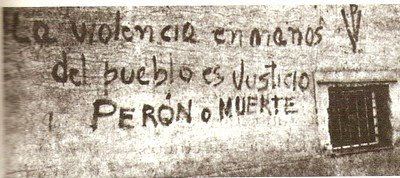 La violencia en manos
del pueblo es Justicia
PERÓN o MUERTE